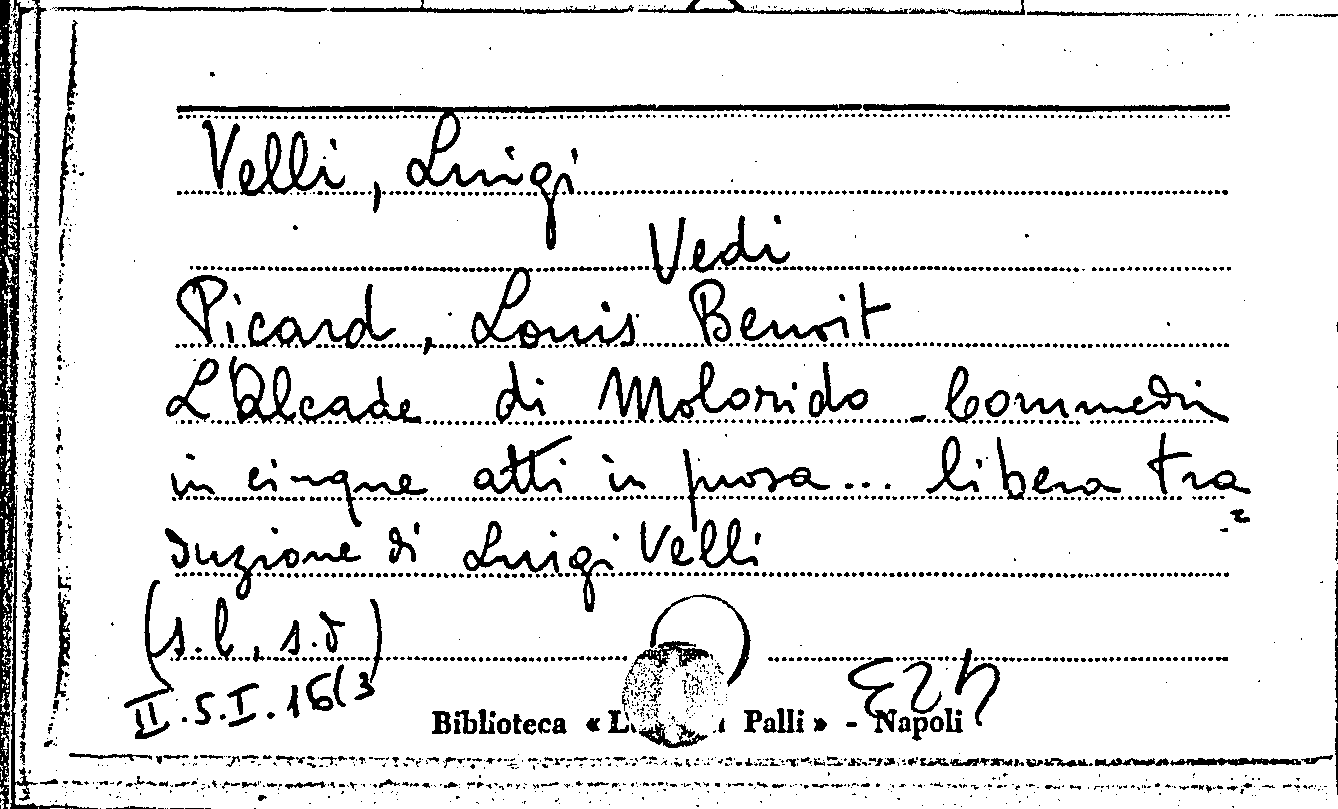 Velli, Luigi
Vedi
Picard, Louis Benoit
L'Alcade di Molorido - Commedia
in cinque atti in prosa... libera tra
duzione di Luigi Velli
(s.l., s.d)
II.S.I.16(3
Biblioteca « Palli » - Napoli